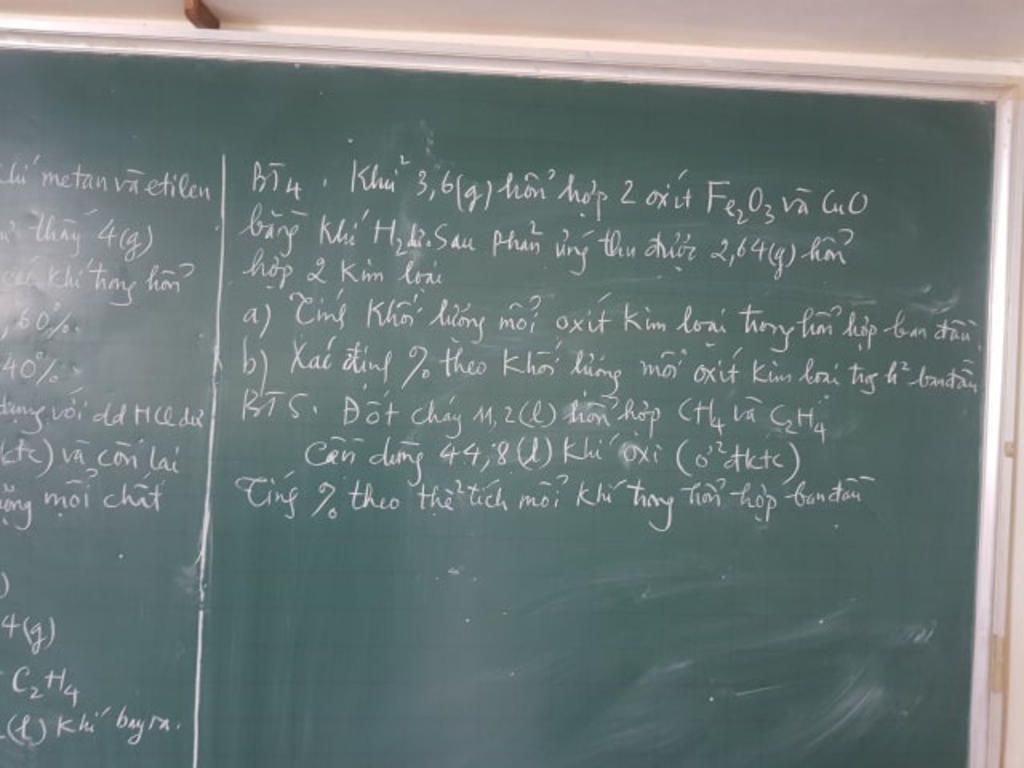 khí metan và etilen
thấy 4(g)
các khí trong hỗn
60%
40%
dụng với dd HCl dư
(ktc) và còn lại
lượng mỗi chất
)
4(g)
C₂H₄
(l) khí bay ra.
BT4. Khử 3,6(g) hỗn hợp 2 oxit Fe₂O₃ và CuO
bằng khí H₂ dư. Sau phản ứng thu được 2,64(g) hỗn
hợp 2 kim loại
a) Tính khối lượng mỗi oxit kim loại trong hỗn hợp ban đầu.
b) Xác định % theo khối lượng mỗi oxit kim loại trg h² ban đầu
BT5. Đốt cháy 11,2(l) hỗn hợp CH₄ và C₂H₄
Cần dùng 44,8(l) khí oxi (ở đktc)
Tính % theo thể tích mỗi khí trong hỗn hợp ban đầu